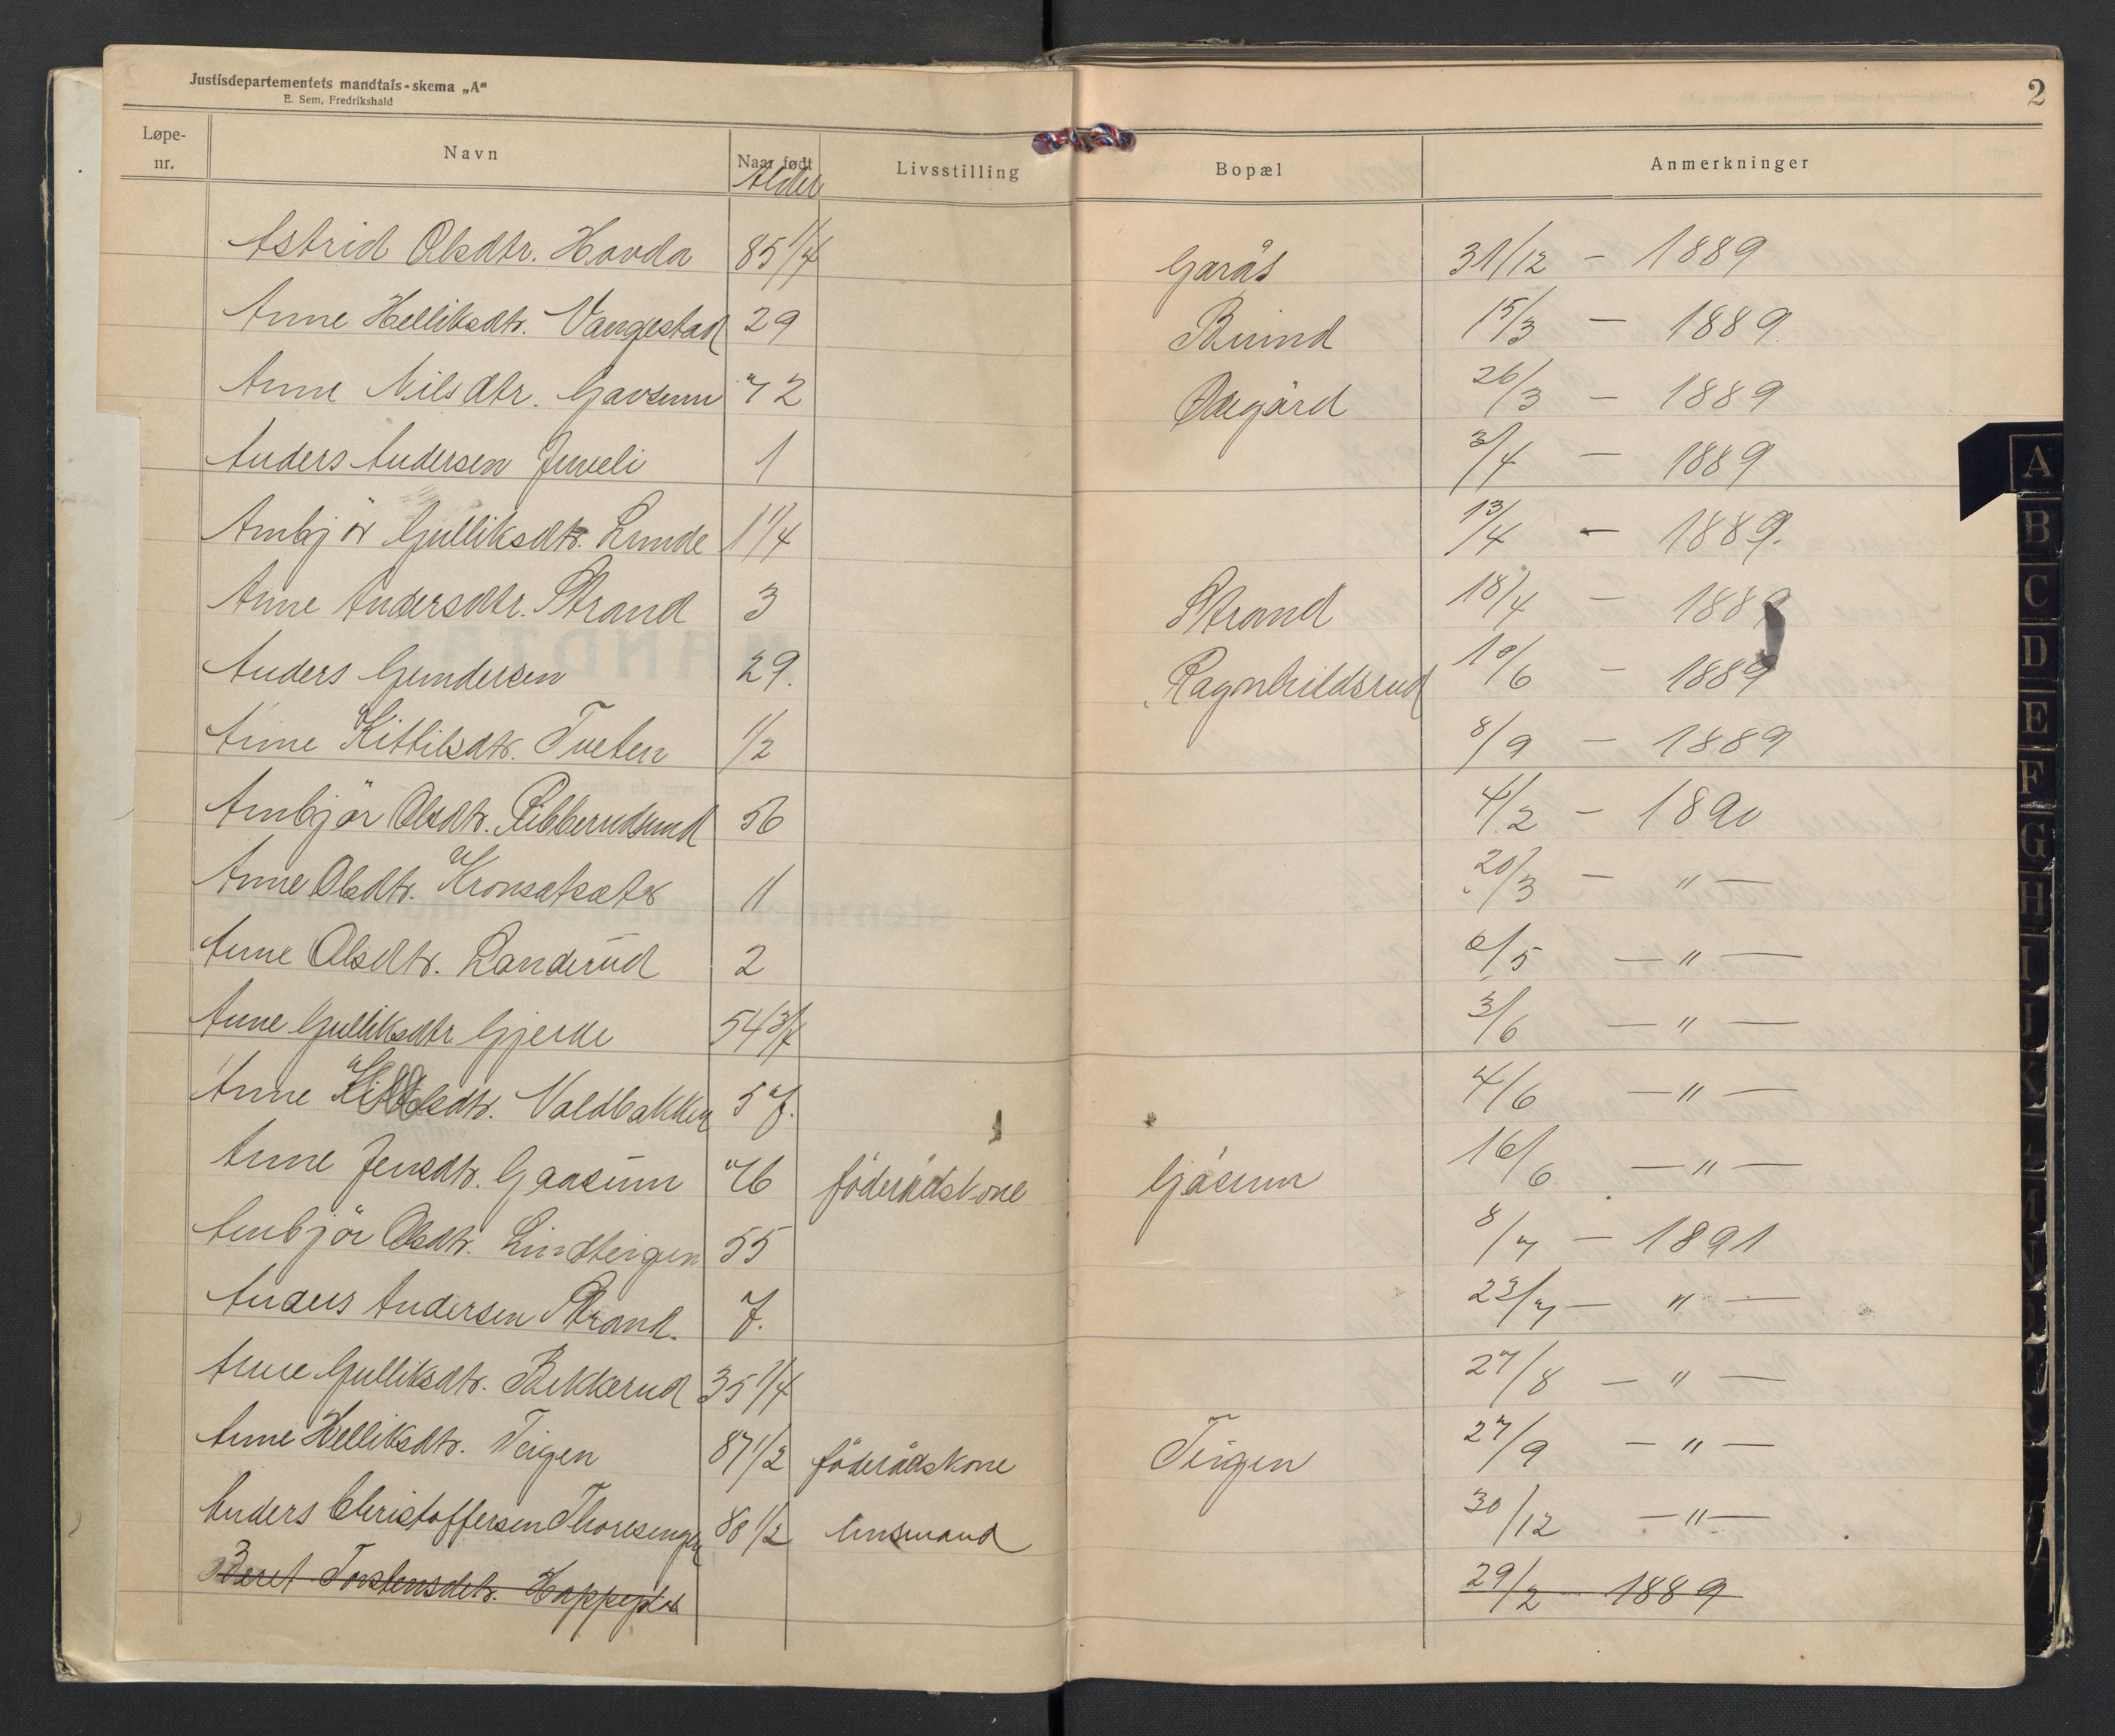 Justisdepartementets mandtals-skema „A"
E. Sem, Fredrikshald
2
Løpe-nr. Navn Naar født Alder Livsstilling Bopæl Anmerkninger
Astrid Olsdtr. Hovda 85 1/4 Garås 31/12 - 1889
Anne Helliksdtr. Vangestad 29 Buind 15/3 - 1889.
Anne Nilsdtr. Gavsum 72 Ødegård 26/3 - 1889
Anders Andersen Juveli 1 3/4 - 1889
Ambjör Gulliksdtr. Lunde 1 1/4 13/4 - 1889.
Anne Andersdtr. Strand 3 Strand 18/4 - 1889
Anders Gundersen 29. Ragnhildsrud 10/6 - 1889
Anne Kittilsdtr. Tveten 1/2 8/9 - 1889
Ambjör Olsdtr. Ribberudsund 56 4/2 - 1890
Anne Olsdtr. 11 20/3 - " -
Anne Olsdtr. Landerud 2 6/5 - " -
Anne Gulliksdtr. Gjerde 54 3/4 3/6 - " -
Anne Voldbakken 57. 4/6 - " -
Anne Jensdtr. Gaasum 76 föderådskone Gjåsum 16/6 - " -
Ambjör Olsdtr. Lindteigen 55 8/7 - 1891
Anders Andersen Strand. 7. 23/7 - " -
Anne Gulliksdtr. Bekkerud 35 1/4 27/8 - " -
Anne Helliksdtr. Teigen 87 1/2 föderådskone Teigen 27/9 - " -
Anders Christoffersen Thoresengen 80 1/2 30/12 - " -
Beret Torstensdtr. 29/2 - 1889
A
B
C
D
E
F
G
H
I
J
K
L
M
N